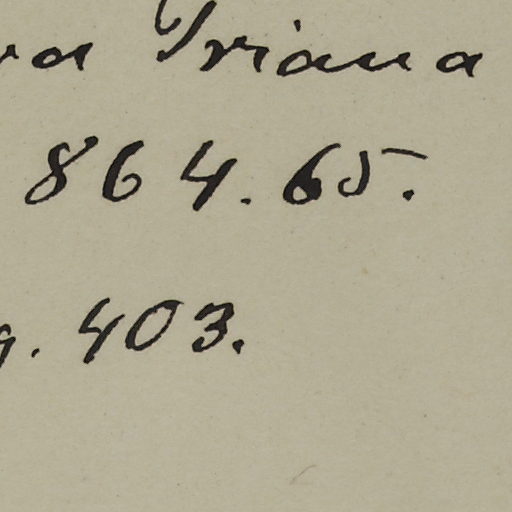 va Triana
864.65.
g. 403.